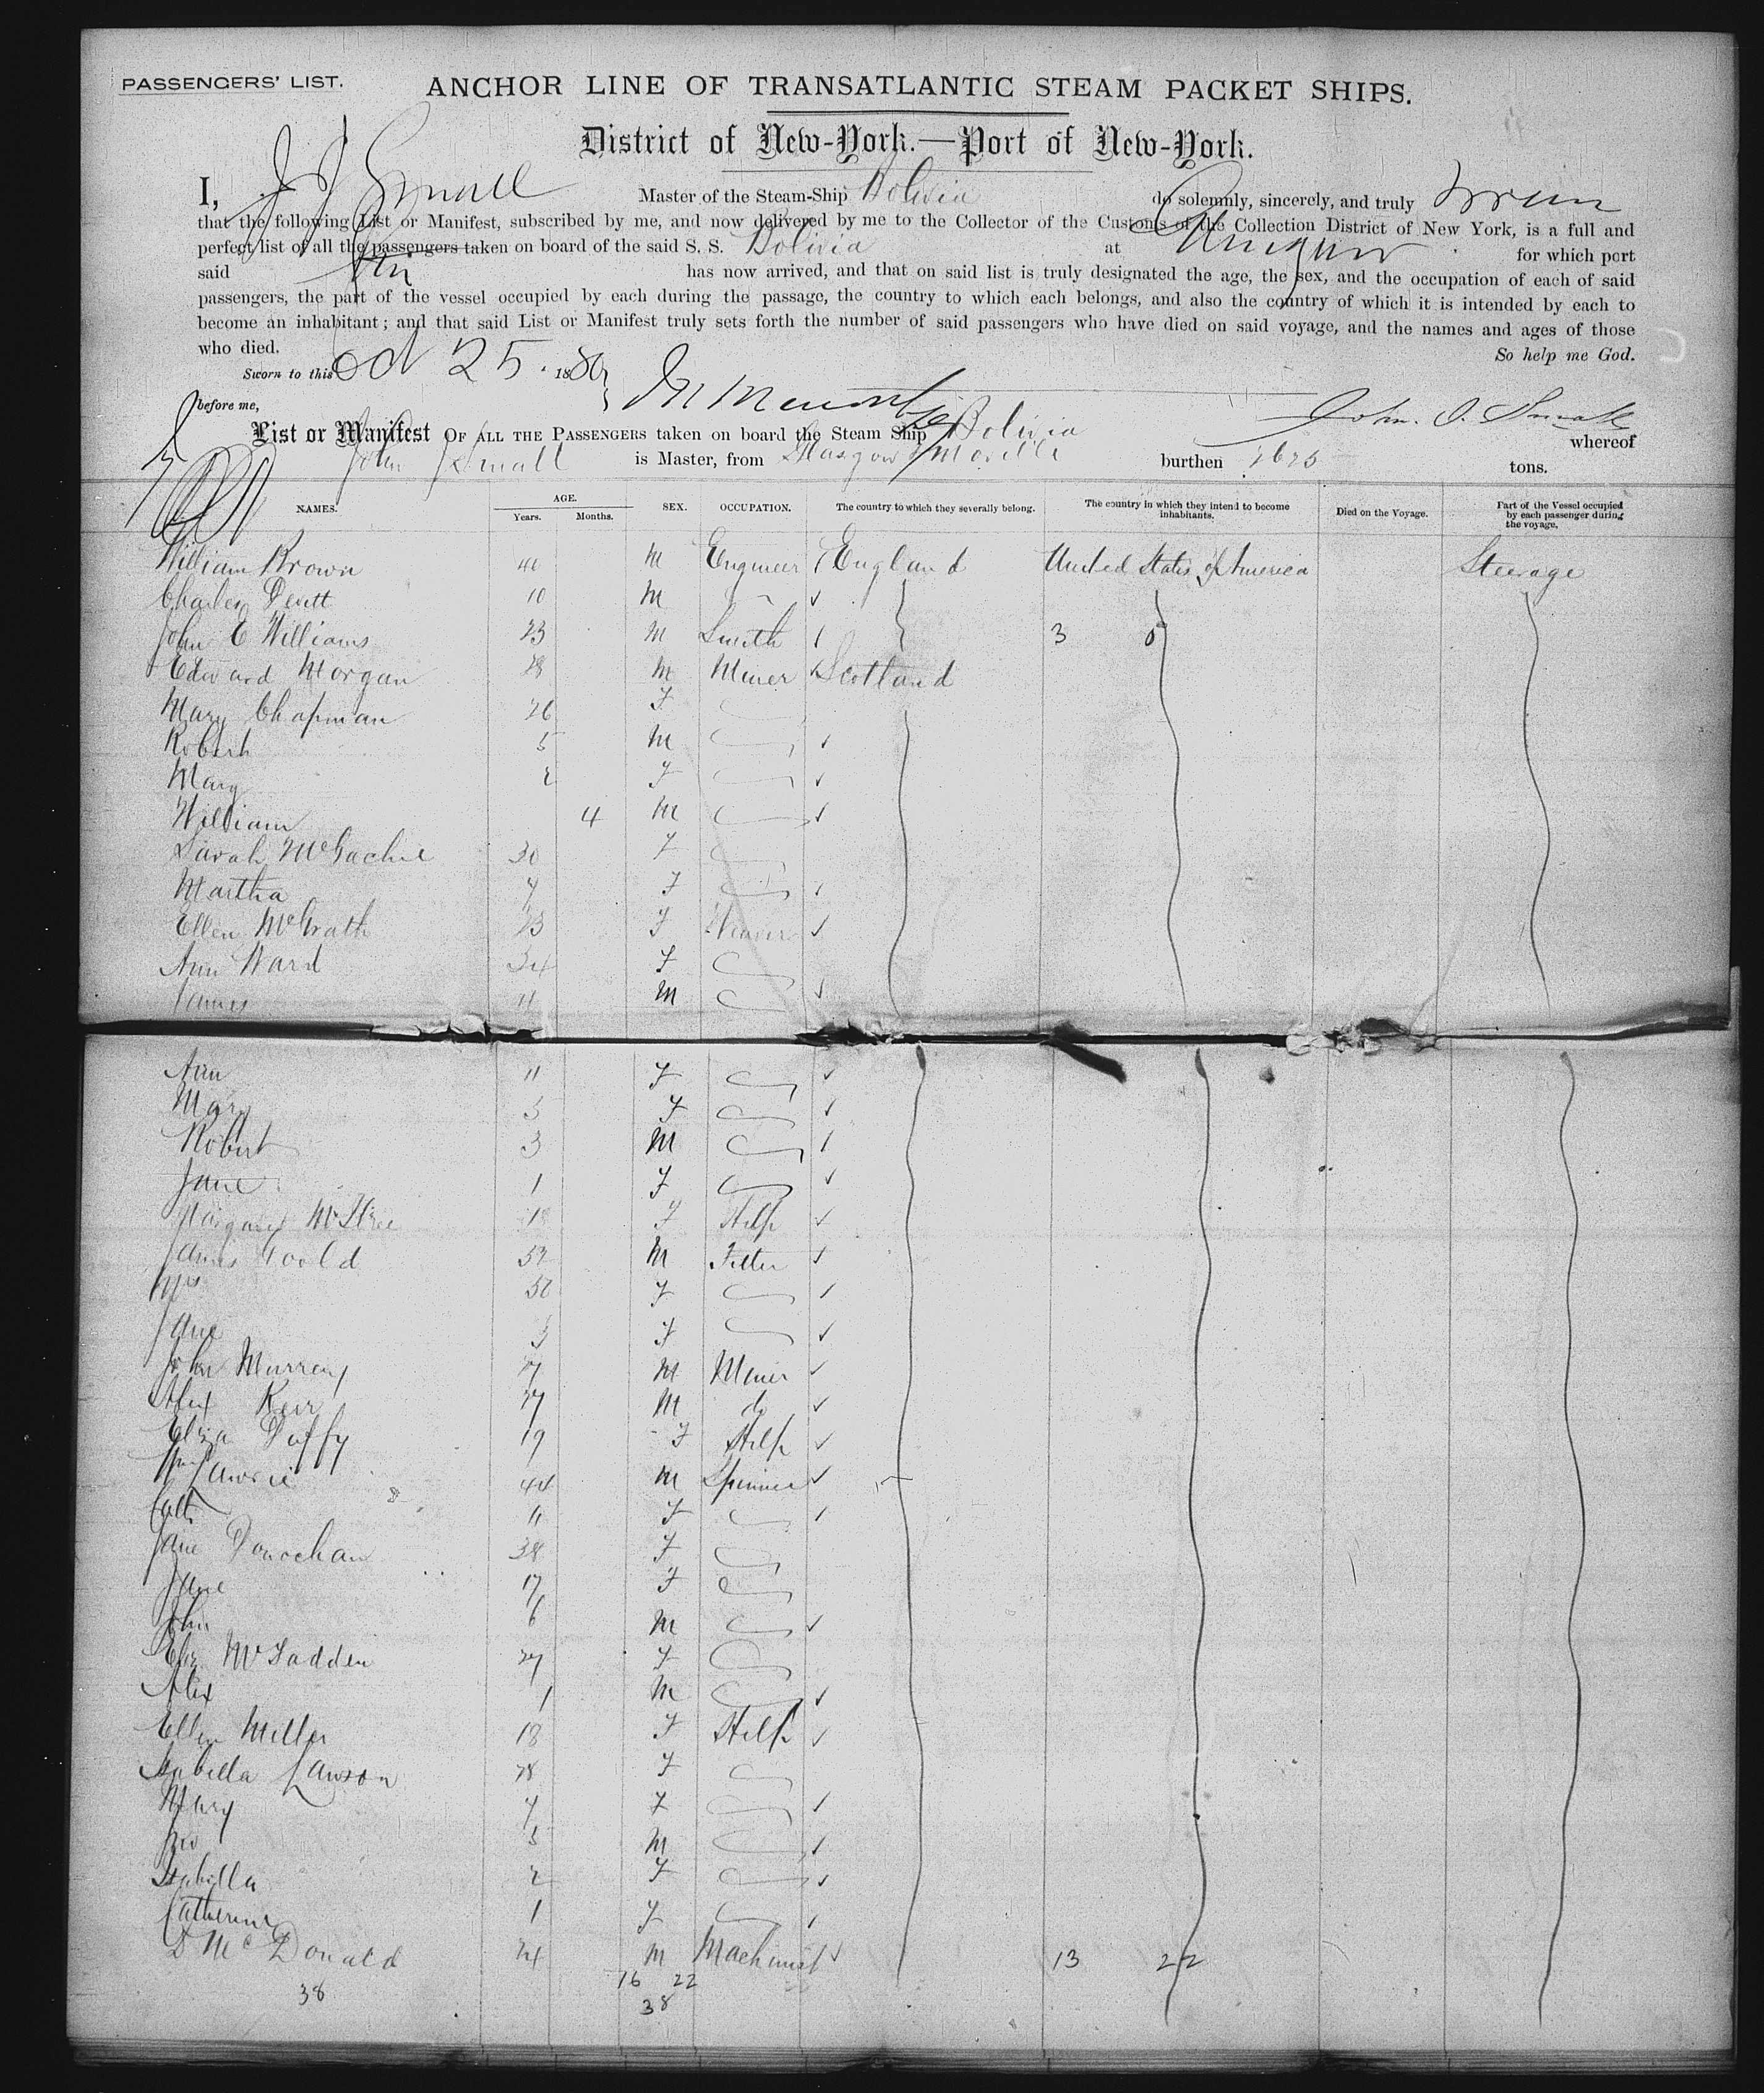 PASSENGERS' LIST. ANCHOR LINE OF TRANSATLANTIC STEAM PACKET SHIPS.
District of New-York.—Port of New-York.
I, J J Small Master of the Steam-Ship Bolivia do solemnly, sincerely, and truly
that the following List or Manifest, subscribed by me, and now delivered by me to the Collector of the Customs of the Collection District of New York, is a full and
perfect list of all the passengers taken on board of the said S. S. Bolivia at for which port
said has now arrived, and that on said list is truly designated the age, the sex, and the occupation of each of said
passengers, the part of the vessel occupied by each during the passage, the country to which each belongs, and also the country of which it is intended by each to
become an inhabitant; and that said List or Manifest truly sets forth the number of said passengers who have died on said voyage, and the names and ages of those
who died. So help me God.
Sworn to this Oct 25. 1880
before me,
List or Manifest OF ALL THE PASSENGERS taken on board the Steam Ship Bolivia whereof
John Small is Master, from Glasgow & Moville burthen tons.
NAMES. AGE. Years. Months. SEX. OCCUPATION. The country to which they severally belong. The country in which they intend to become inhabitants. Died on the Voyage. Part of the Vessel occupied by each passenger during the voyage.
William Brown 40 M Engineer England United States of America Steerage
Charles 10 M
John E Williams 23 M Smith 3
Edward Morgan 28 M Miner Scotland
Mary Chapman 26 F
Robert 5 M
Mary 2 F
William 4 M
Sarah McGachie 30 F
Martha F
Ellen McGrath 23 F Weaver
Ann Ward 34 F
James 11 M
Ann 11 F
Mary 5 F
Robert 3 M
Jane 1 F
Margaret F Help
James M Fitter
Mrs 50 F
Jane 3 F
John Murray M Miner
Alex Kerr 27 M do
Eliza Duffy 19 F Help
Wm Lawrie 44 M Spinner
Cath 11 F
Jane Donochan 38 F
Jane 17 F
John 6 M
Eliz McFadden 27 F
Alex 1 M
Ellen Miller 18 F Help
Isabella Lawson 28 F
Mary F
Jno 5 M
Isabella 2 F
Catherine 1 F
D McDonald 24 M Machinist 13 22
38 16 22
38